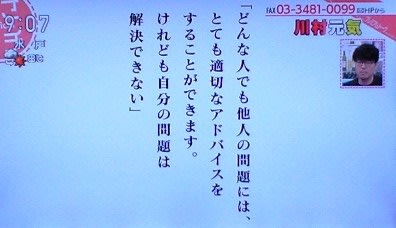 9:07
水戸
FAX 03-3481-0099
HPから
川村元気
「どんな人でも他人の問題には、
とても適切なアドバイスを
することができます。
けれども自分の問題は
解決できない」